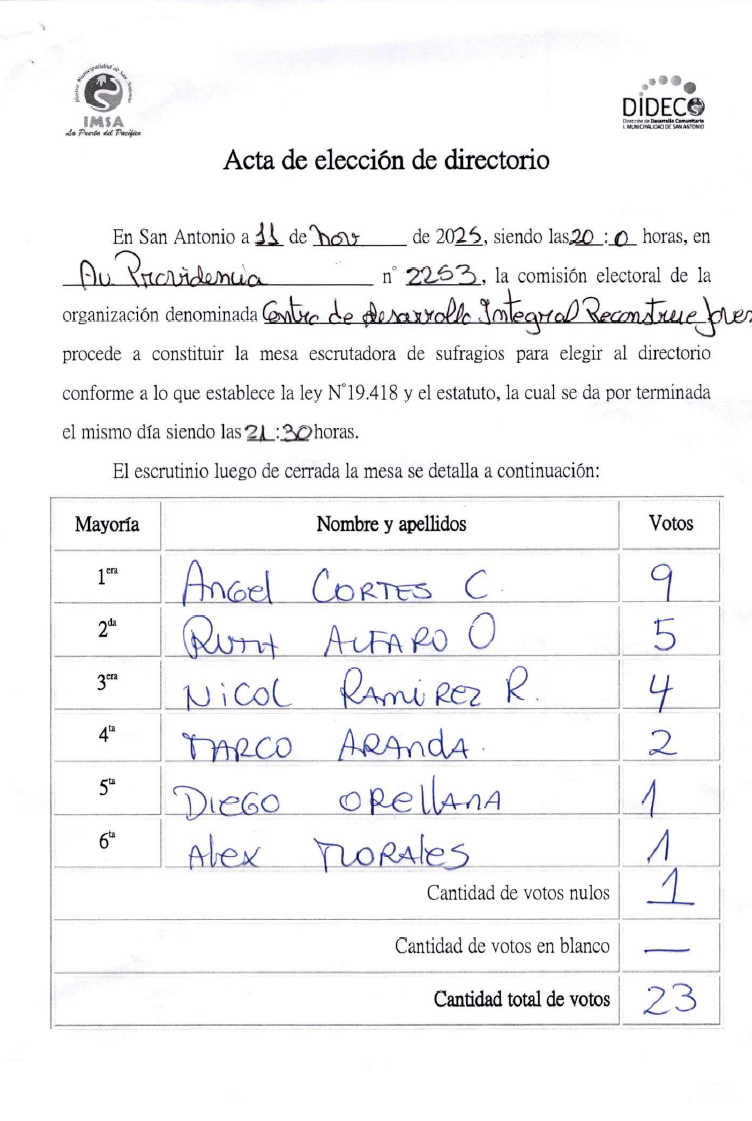 Ilustre Municipalidad de San Antonio
IMSA
La Puerta del Pacífico
DIDECO
Dirección de Desarrollo Comunitario
I. MUNICIPALIDAD DE SAN ANTONIO
Acta de elección de directorio
En San Antonio a 11 de Nov de 2025, siendo las 20 : 0 horas, en
Av. Providencia n° 2253, la comisión electoral de la
organización denominada Centro de desarrollo Integral Reconstruye Joven
procede a constituir la mesa escrutadora de sufragios para elegir al directorio
conforme a lo que establece la ley N°19.418 y el estatuto, la cual se da por terminada
el mismo día siendo las 21 : 30 horas.
El escrutinio luego de cerrada la mesa se detalla a continuación:
Mayoría Nombre y apellidos Votos
1era Angel CORTES C. 9
2da RUTH ALFARO O 5
3era NICOL RAMIREZ R. 4
4ta MARCO ARANDA. 2
5ta DIEGO ORELLANA 1
6ta Alex MORALES 1
Cantidad de votos nulos 1
Cantidad de votos en blanco —
Cantidad total de votos 23